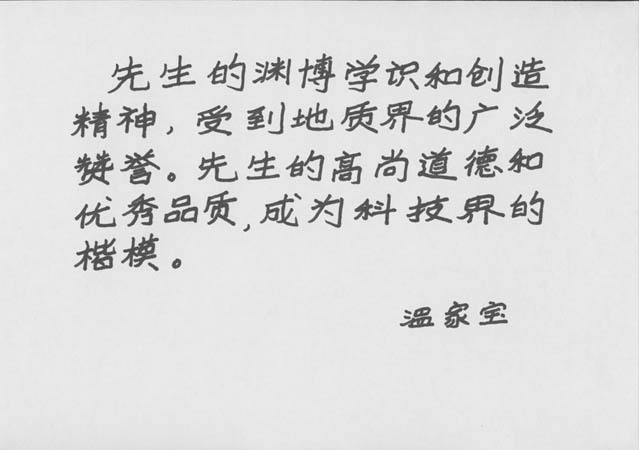 先生的渊博学识和创造
精神，受到地质界的广泛
赞誉。先生的高尚道德和
优秀品质，成为科技界的
楷模。
温家宝